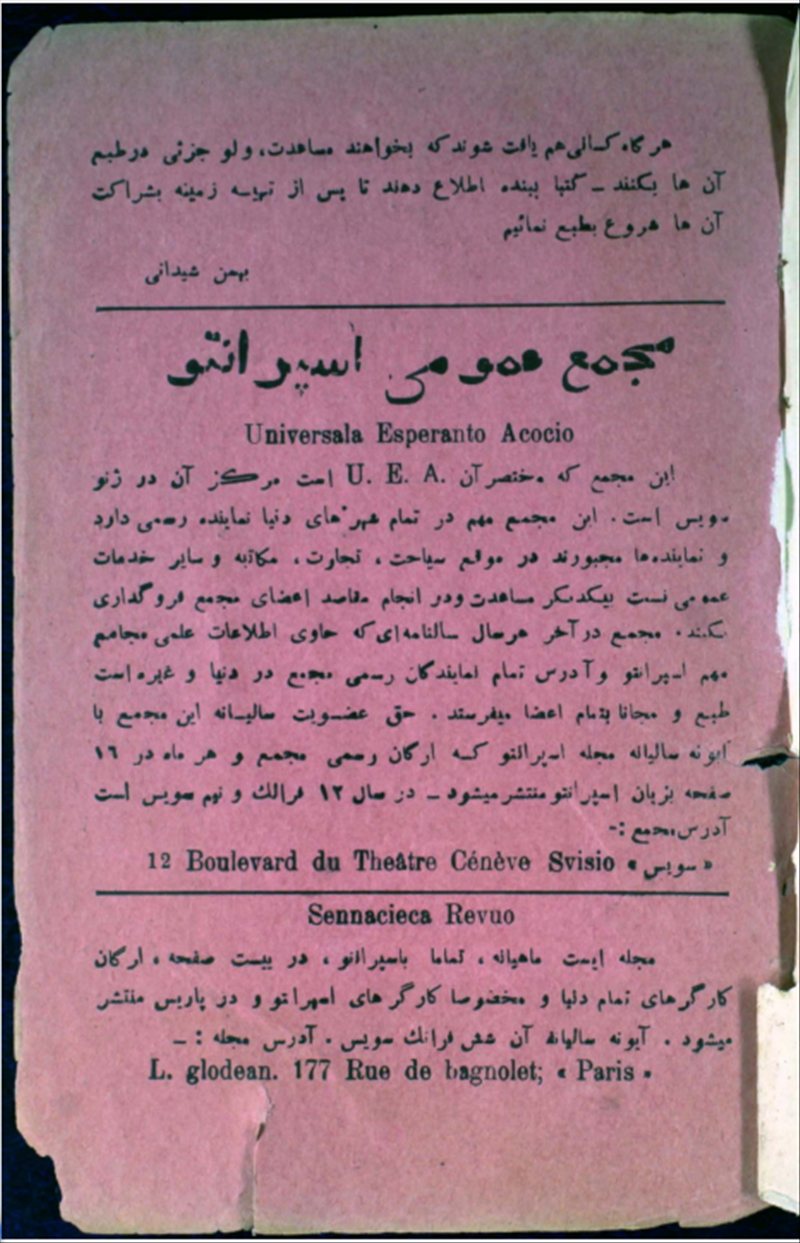 هرگاه کسانی هم یافت شوند که بخواهند مساعدت، ولو جزئی درطبع
آن ها بکنند ـ کتبا ببنده اطلاع دهند تا پس از تهیه زمینه بشراکت
آن ها شروع بطبع نمائیم
بهمن شیدانی
مجمع عمومی اسپرانتو
Universala Esperanto Acocio
این مجمع که مختصر آن U. E. A. است مرکز آن در ژنو
سویس است. این مجمع مهم در تمام شهرهای دنیا نماینده رسمی دارد
و نماینده‌ها مجبورند در موقع سیاحت، تجارت، مکاتبه و سایر خدمات
عمومی نسبت بیکدیگر مساعدت ودر انجام مقاصد اعضای مجمع فروگذاری
نکنند. مجمع درآخر هرسال سالنامه‌ای که حاوی اطلاعات علمی مجامع
مهم اسپرانتو وآدرس تمام نمایندگان رسمی مجمع در دنیا و غیره است
طبع و مجانا بتمام اعضا میفرستد. حق عضویت سالیانه این مجمع با
آبونه سالیانه مجله اسپرانتو که ارگان رسمی مجمع و هر ماه در ۱٦
صفحه بزبان اسپرانتو منتشر میشود ـ در سال ۱۲ فرانك و نیم سویس است
آدرس مجمع :-
12 Boulevard du Theâtre Cénève Svisio «سویس»
Sennacieca Revuo
مجله ایست ماهیانه، تماما باسپرانتو، در بیست صفحه، ارگان
کارگرهای تمام دنیا و مخصوصا کارگرهای اسپرانتو و در پاریس منتشر
میشود. آبونه سالیانه آن شش فرانك سویس. آدرس مجله : ـ
L. glodean. 177 Rue de bagnolet; « Paris »